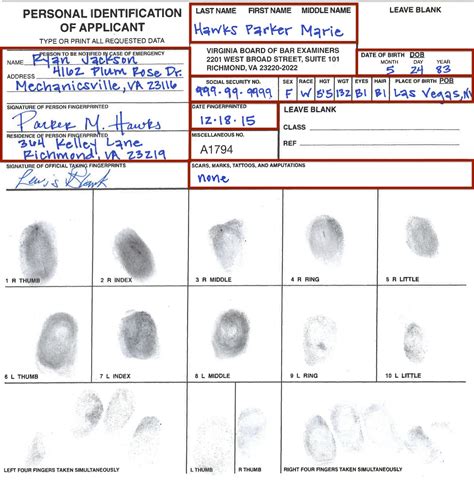 PERSONAL IDENTIFICATION
OF APPLICANT
TYPE OR PRINT ALL REQUESTED DATA
LAST NAME FIRST NAME MIDDLE NAME
Hawks Parker Marie
LEAVE BLANK
PERSON TO BE NOTIFIED IN CASE OF EMERGENCY
NAME Ryan Jackson
ADDRESS 4102 Plum Rose Dr.
Mechanicsville, VA 23116
VIRGINIA BOARD OF BAR EXAMINERS
2201 WEST BROAD STREET, SUITE 101
RICHMOND, VA 23220-2022
DATE OF BIRTH DOB
MONTH DAY YEAR
5 24 83
SOCIAL SECURITY NO. SEX RACE HGT WGT EYES HAIR PLACE OF BIRTH POB
999-99-9999 F W 5'5 132 Bl Bl Las Vegas, NV
SIGNATURE OF PERSON FINGERPRINTED
Parker M. Hawks
DATE FINGERPRINTED
12-18-15
LEAVE BLANK
CLASS
REF
RESIDENCE OF PERSON FINGERPRINTED
364 Kelley Lane
Richmond, VA 23219
MISCELLANEOUS NO.
A1794
SIGNATURE OF OFFICIAL TAKING FINGERPRINTS
Lewis Blank
SCARS, MARKS, TATTOOS, AND AMPUTATIONS
none
1 R THUMB
2 R INDEX
3 R MIDDLE
4 R RING
5 R LITTLE
6 L THUMB
7 L INDEX
8 L MIDDLE
9 L RING
10 L LITTLE
LEFT FOUR FINGERS TAKEN SIMULTANEOUSLY
L THUMB
R THUMB
RIGHT FOUR FINGERS TAKEN SIMULTANEOUSLY